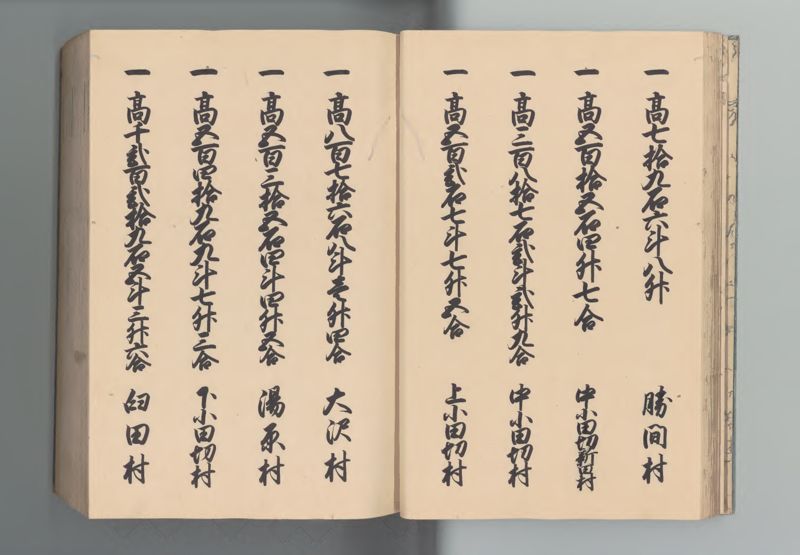 一 高七拾九石六斗八升 勝間村
一 高五百拾五石四升七合 中小田切新田村
一 高三百八拾七石弐斗弐升九合 中小田切村
一 高五百弐石七斗七升五合 上小田切村
一 高八百七拾六石八斗壱升四合 大沢村
一 高五百三拾五石四斗四升五合 湯原村
一 高五百四拾九石九斗七升三合 下小田切村
一 高千弐百弐拾九石五斗三升六合 臼田村